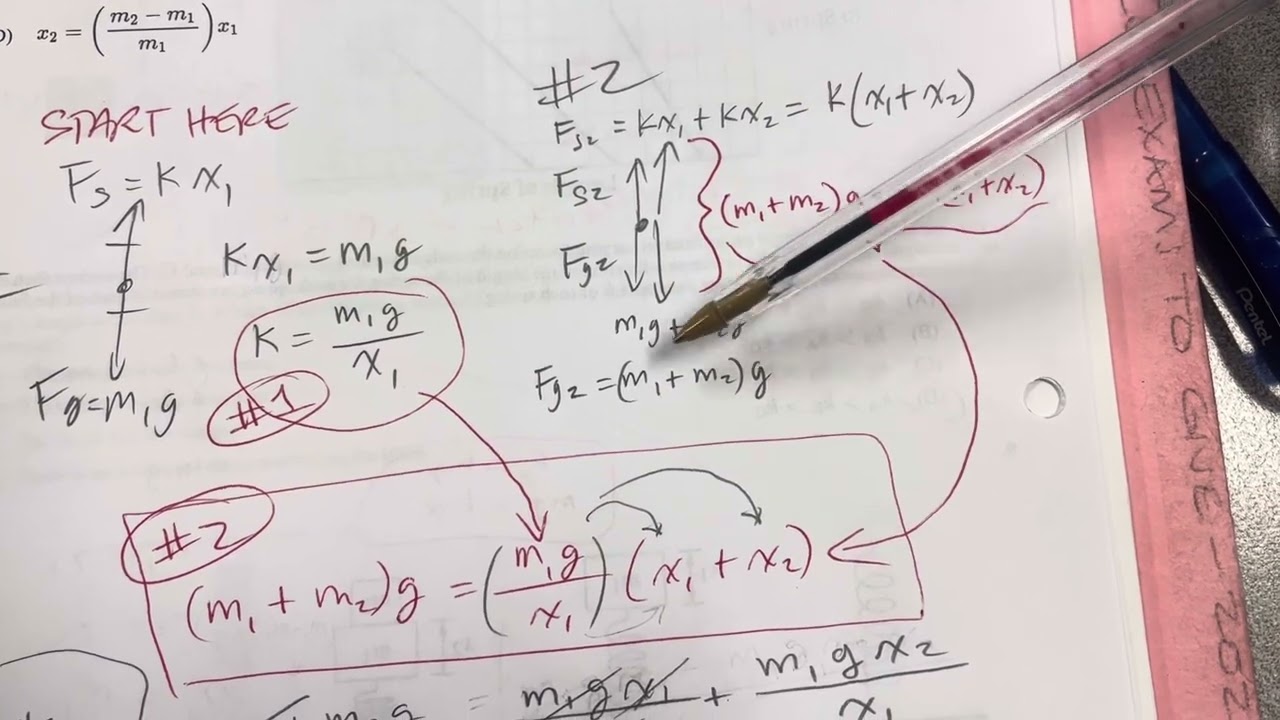 x₂ = ((m₂ − m₁)/m₁) x₁
START HERE
Fs = K x₁
K x₁ = m₁g
K = m₁g / x₁
#1
Fg = m₁g
#2
Fs2 = Kx₁ + Kx₂ = K(x₁ + x₂)
Fs2
(m₁ + m₂)g
+ x₂)
Fg2
m₁g +
Fg2 = (m₁ + m₂)g
#2
(m₁ + m₂)g = (m₁g / x₁)(x₁ + x₂)
= m₁gx₁ + m₁gx₂ / x₁
EXAM 1 TO GIVE - 202
Pentel